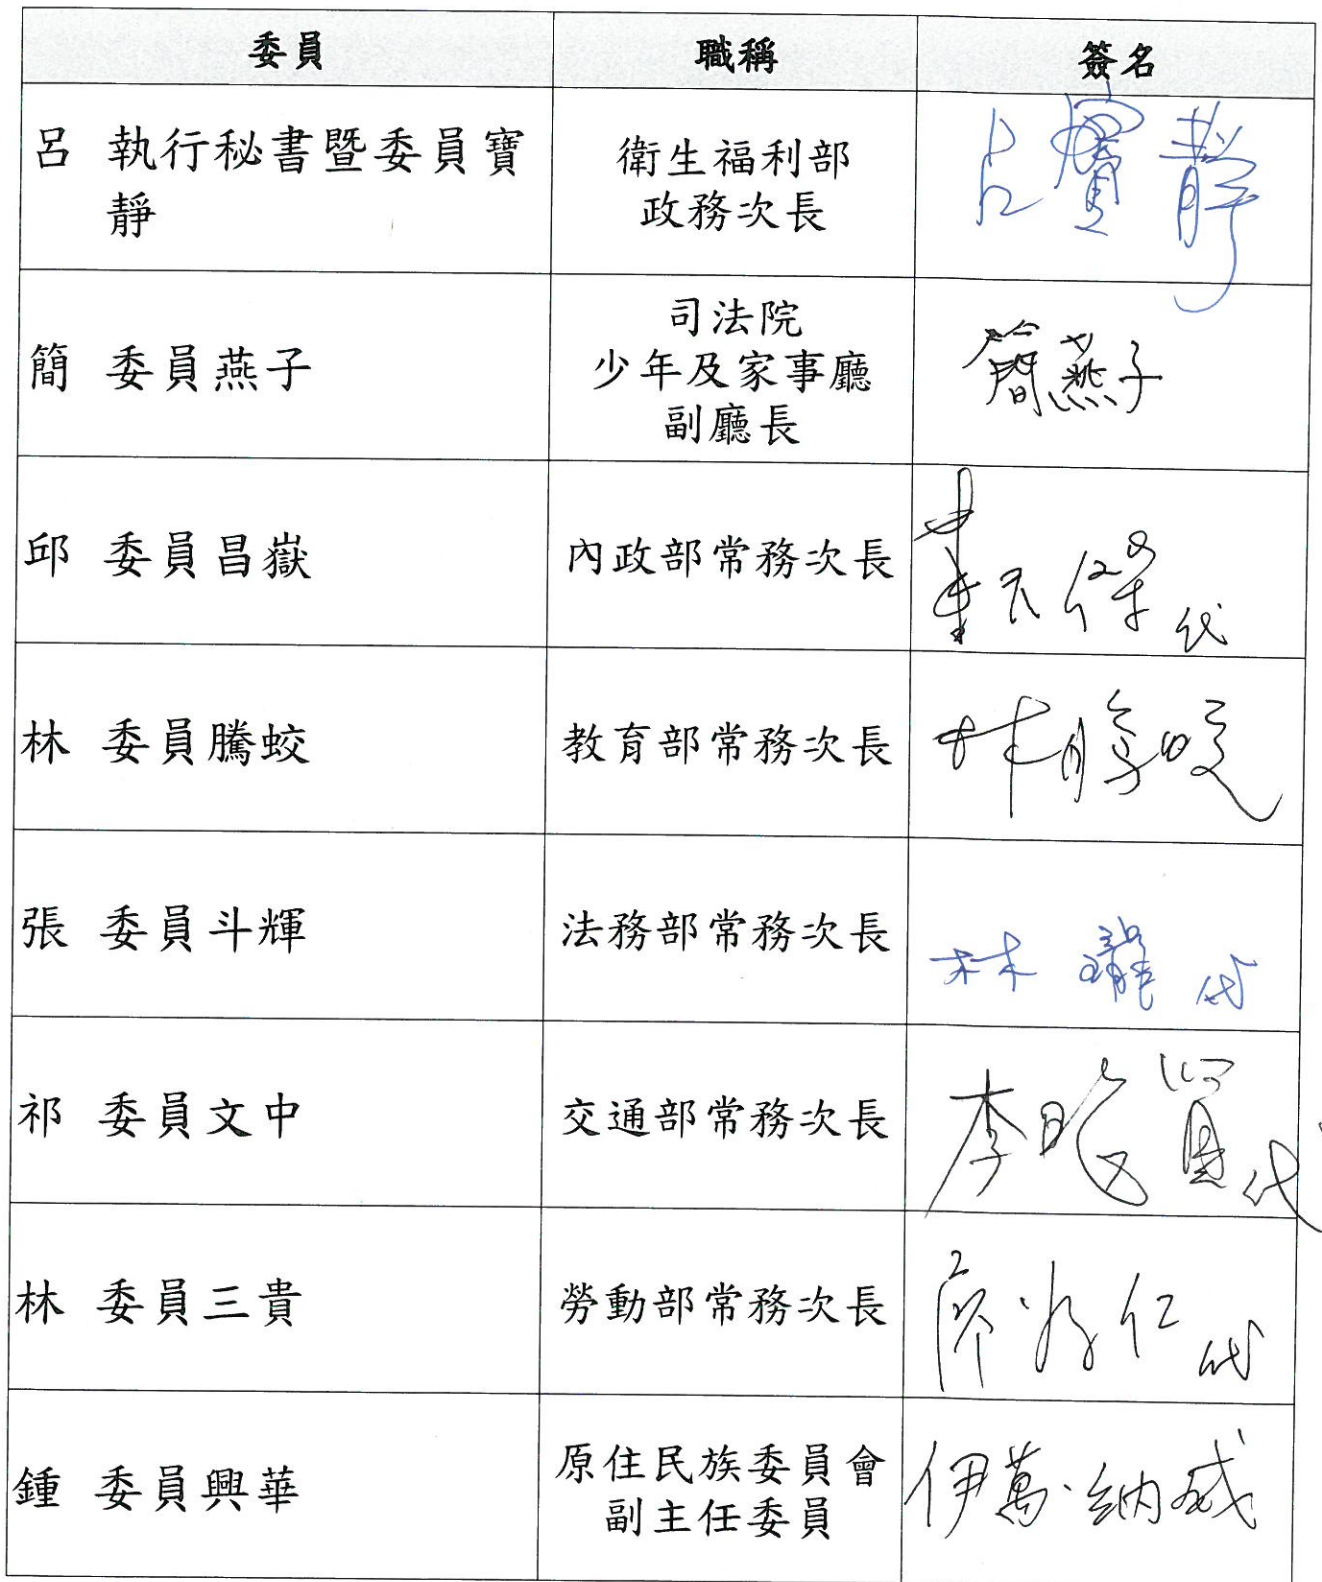 委員 職稱 簽名
呂 執行秘書暨委員寶
靜
衛生福利部
政務次長
呂寶靜
簡 委員燕子
司法院
少年及家事廳
副廳長
簡燕子
邱 委員昌嶽 內政部常務次長
代
林 委員騰蛟 教育部常務次長 林騰蛟
張 委員斗輝 法務部常務次長 林 代
祁 委員文中 交通部常務次長 李昭賢代
林 委員三貴 勞動部常務次長 廖 仁代
鍾 委員興華
原住民族委員會
副主任委員
伊萬·納威